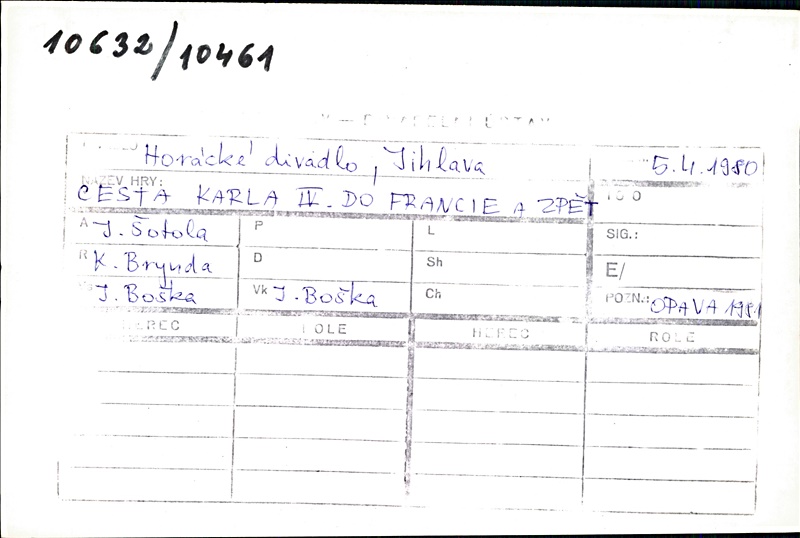 10632/10461
Horácké divadlo, Jihlava 5.4.1980
NÁZEV HRY:
CESTA KARLA IV. DO FRANCIE A ZPĚT
A J. Šotola P L SIG.:
R K. Brynda D Sh E/
J. Boška Vk J. Boška Ch POZN.: OPAVA 1981
HEREC ROLE HEREC ROLE